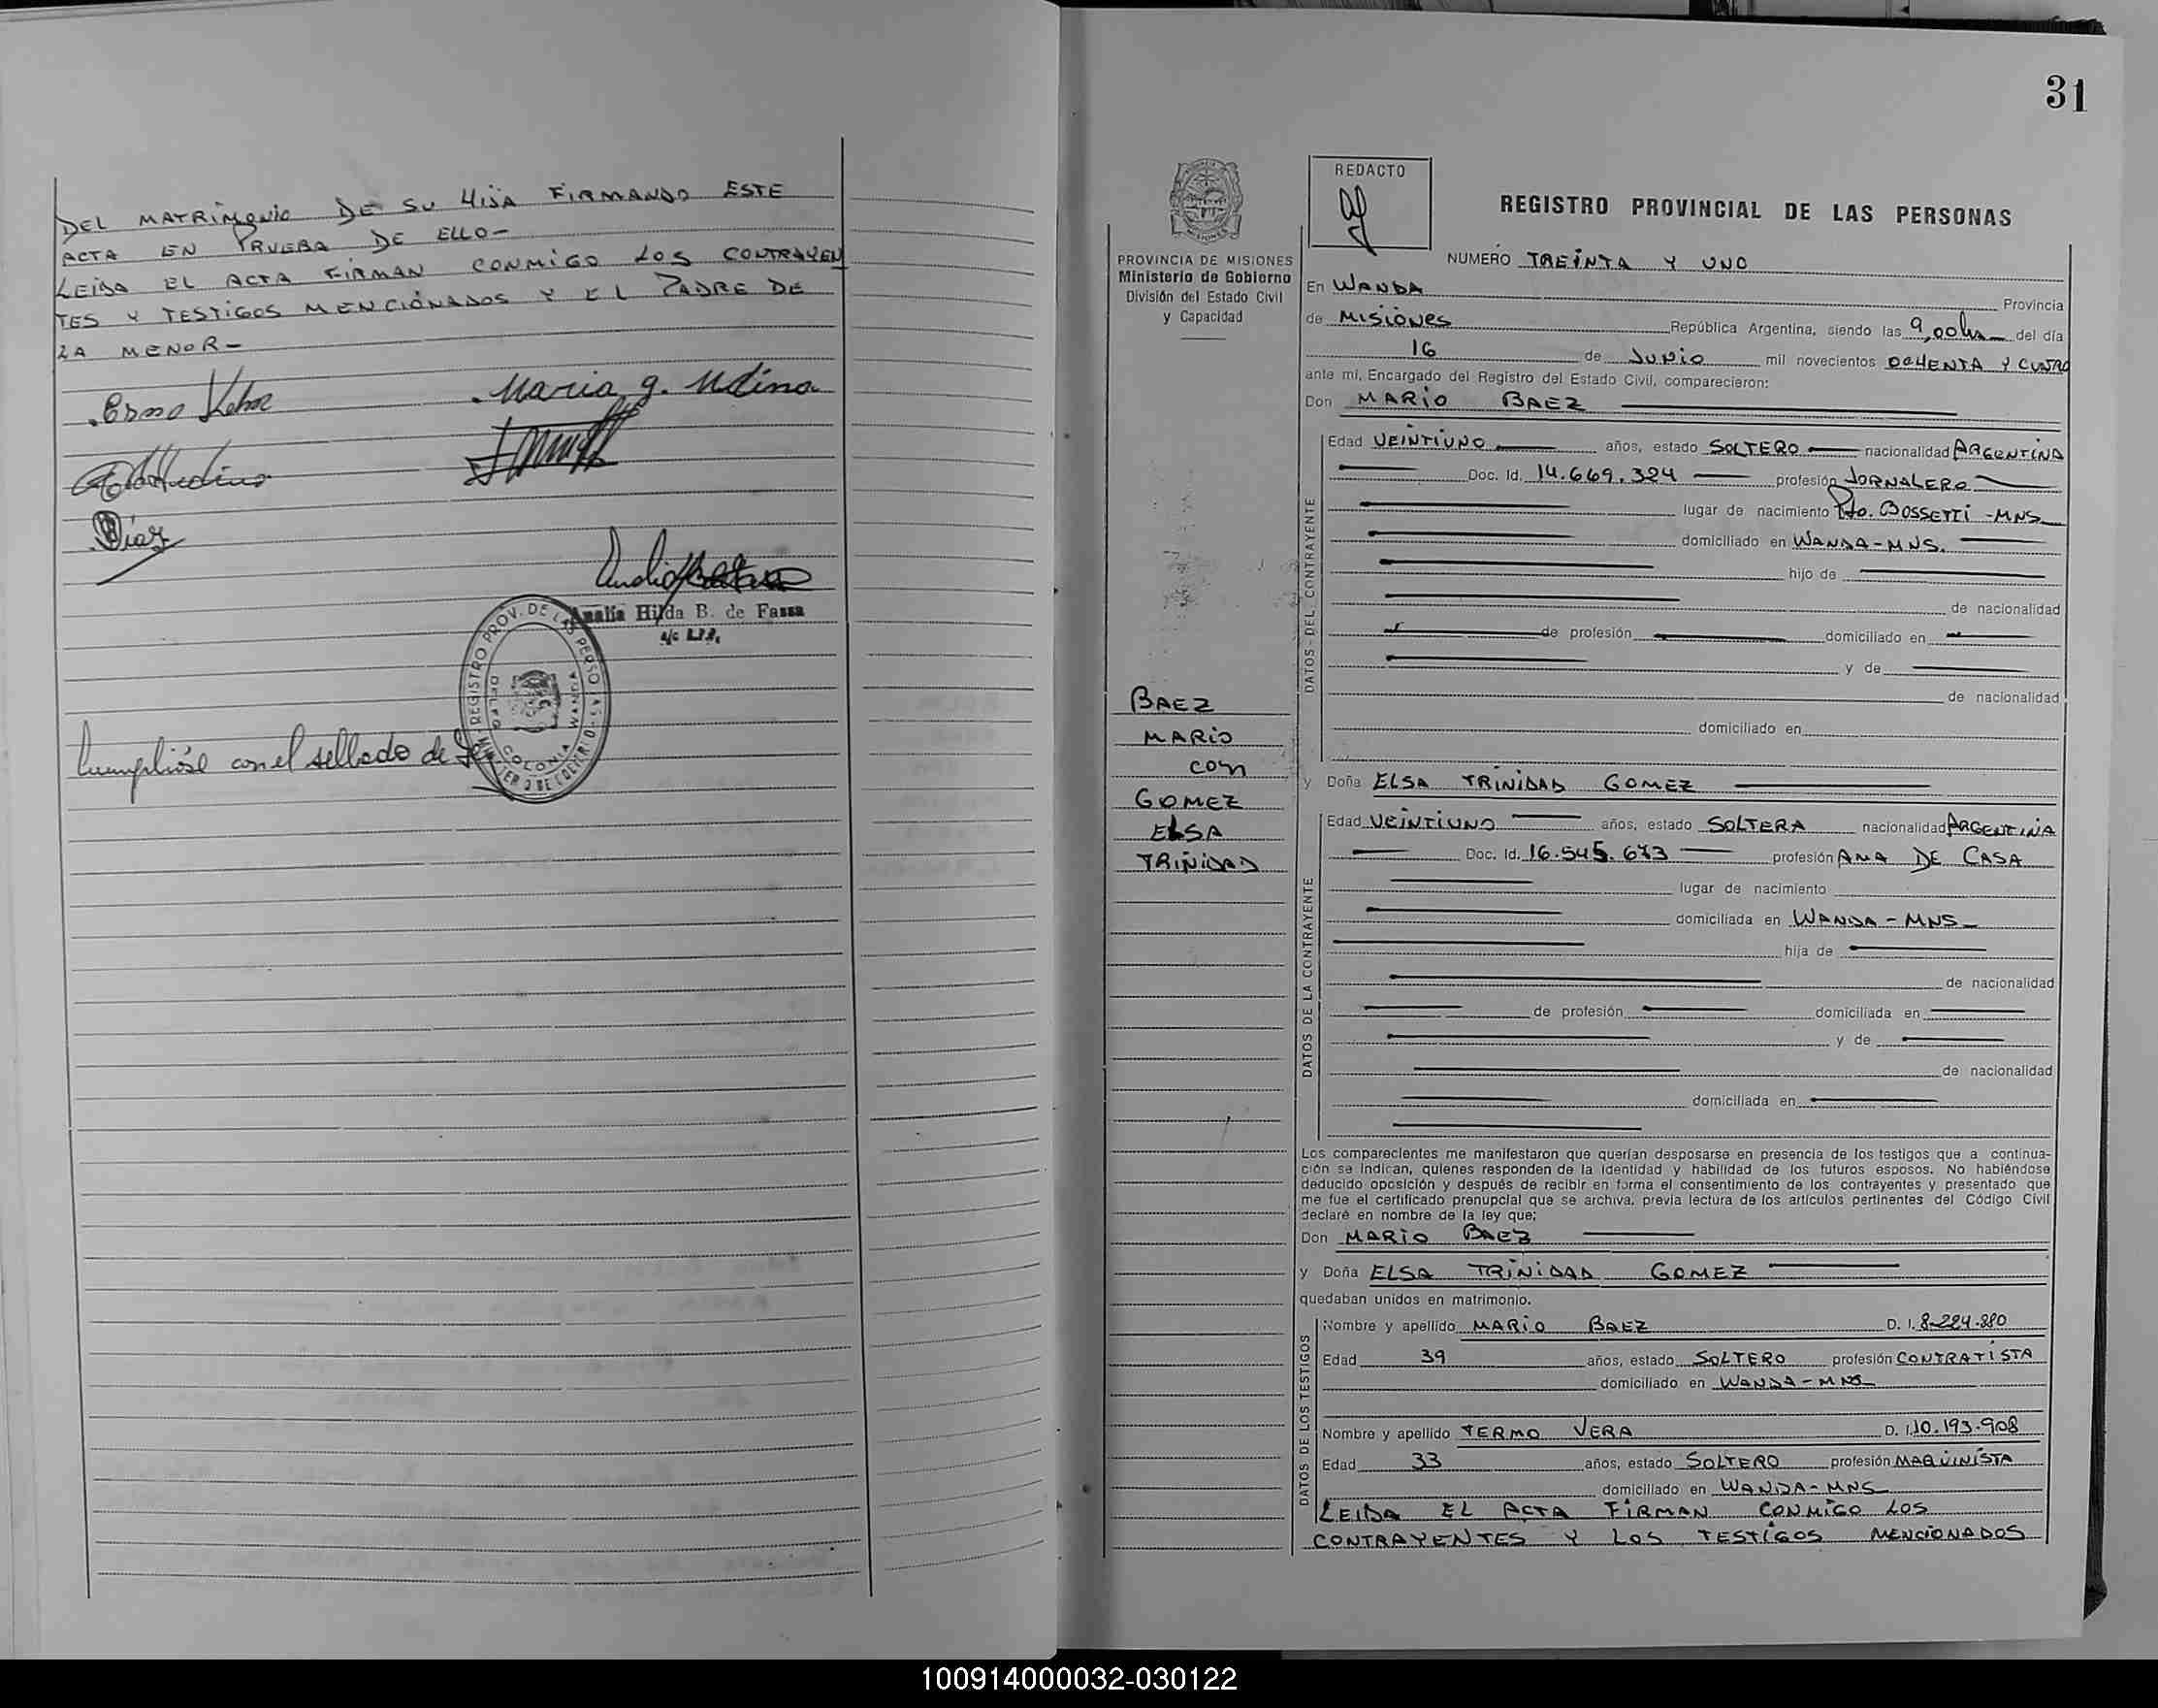 DEL MATRIMONIO DE SU HIJA FIRMANDO ESTE
ACTA EN PRUEBA DE ELLO-
LEIDA EL ACTA FIRMAN CONMIGO LOS CONTRAYEN
TES Y TESTIGOS MENCIONADOS Y EL PADRE DE
LA MENOR-
Maria g.
Diaz
Analia Hilda B. de Fassa
REGISTRO PROV. DE LAS PERSONAS
COLONIA WANDA
Cumplióse con el sellado de
31
REDACTO
REGISTRO PROVINCIAL DE LAS PERSONAS
PROVINCIA DE MISIONES
Ministerio de Gobierno
División del Estado Civil
y Capacidad
NUMERO TREINTA Y UNO
En WANDA Provincia
de MISIONES República Argentina, siendo las 9,00hs del día
16 de JUNIO mil novecientos OCHENTA Y CUATRO
ante mí, Encargado del Registro del Estado Civil, comparecieron:
Don MARIO BAEZ
DATOS DEL CONTRAYENTE
Edad VEINTIUNO años, estado SOLTERO nacionalidad ARGENTINA
Doc. Id. 14.669.324 profesión JORNALERO
lugar de nacimiento Pto. BOSSETTI-MNS
domiciliado en WANDA-MNS.
hijo de
de nacionalidad
de profesión domiciliado en
y de
de nacionalidad
domiciliado en
BAEZ
MARIO
con
GOMEZ
ELSA
TRINIDAD
y Doña ELSA TRINIDAD GOMEZ
DATOS DE LA CONTRAYENTE
Edad VEINTIUNO años, estado SOLTERA nacionalidad ARGENTINA
Doc. Id. 16.545.673 profesión AMA DE CASA
lugar de nacimiento
domiciliada en WANDA-MNS
hija de
de nacionalidad
de profesión domiciliada en
y de
de nacionalidad
domiciliada en
Los comparecientes me manifestaron que querían desposarse en presencia de los testigos que a continua-
ción se indican, quienes responden de la identidad y habilidad de los futuros esposos. No habiéndose
deducido oposición y después de recibir en forma el consentimiento de los contrayentes y presentado que
me fue el certificado prenupcial que se archiva, previa lectura de los artículos pertinentes del Código Civil
declaré en nombre de la ley que;
Don MARIO BAEZ
y Doña ELSA TRINIDAD GOMEZ
quedaban unidos en matrimonio.
DATOS DE LOS TESTIGOS
Nombre y apellido MARIO BAEZ D. I. 8.224.280
Edad 39 años, estado SOLTERO profesión CONTRATISTA
domiciliado en WANDA-MNS
Nombre y apellido TERMO VERA D. I. 10.193.908
Edad 33 años, estado SOLTERO profesión MAQUINISTA
domiciliado en WANDA-MNS
LEIDA EL ACTA FIRMAN CONMIGO LOS
CONTRAYENTES Y LOS TESTIGOS MENCIONADOS
100914000032-030122